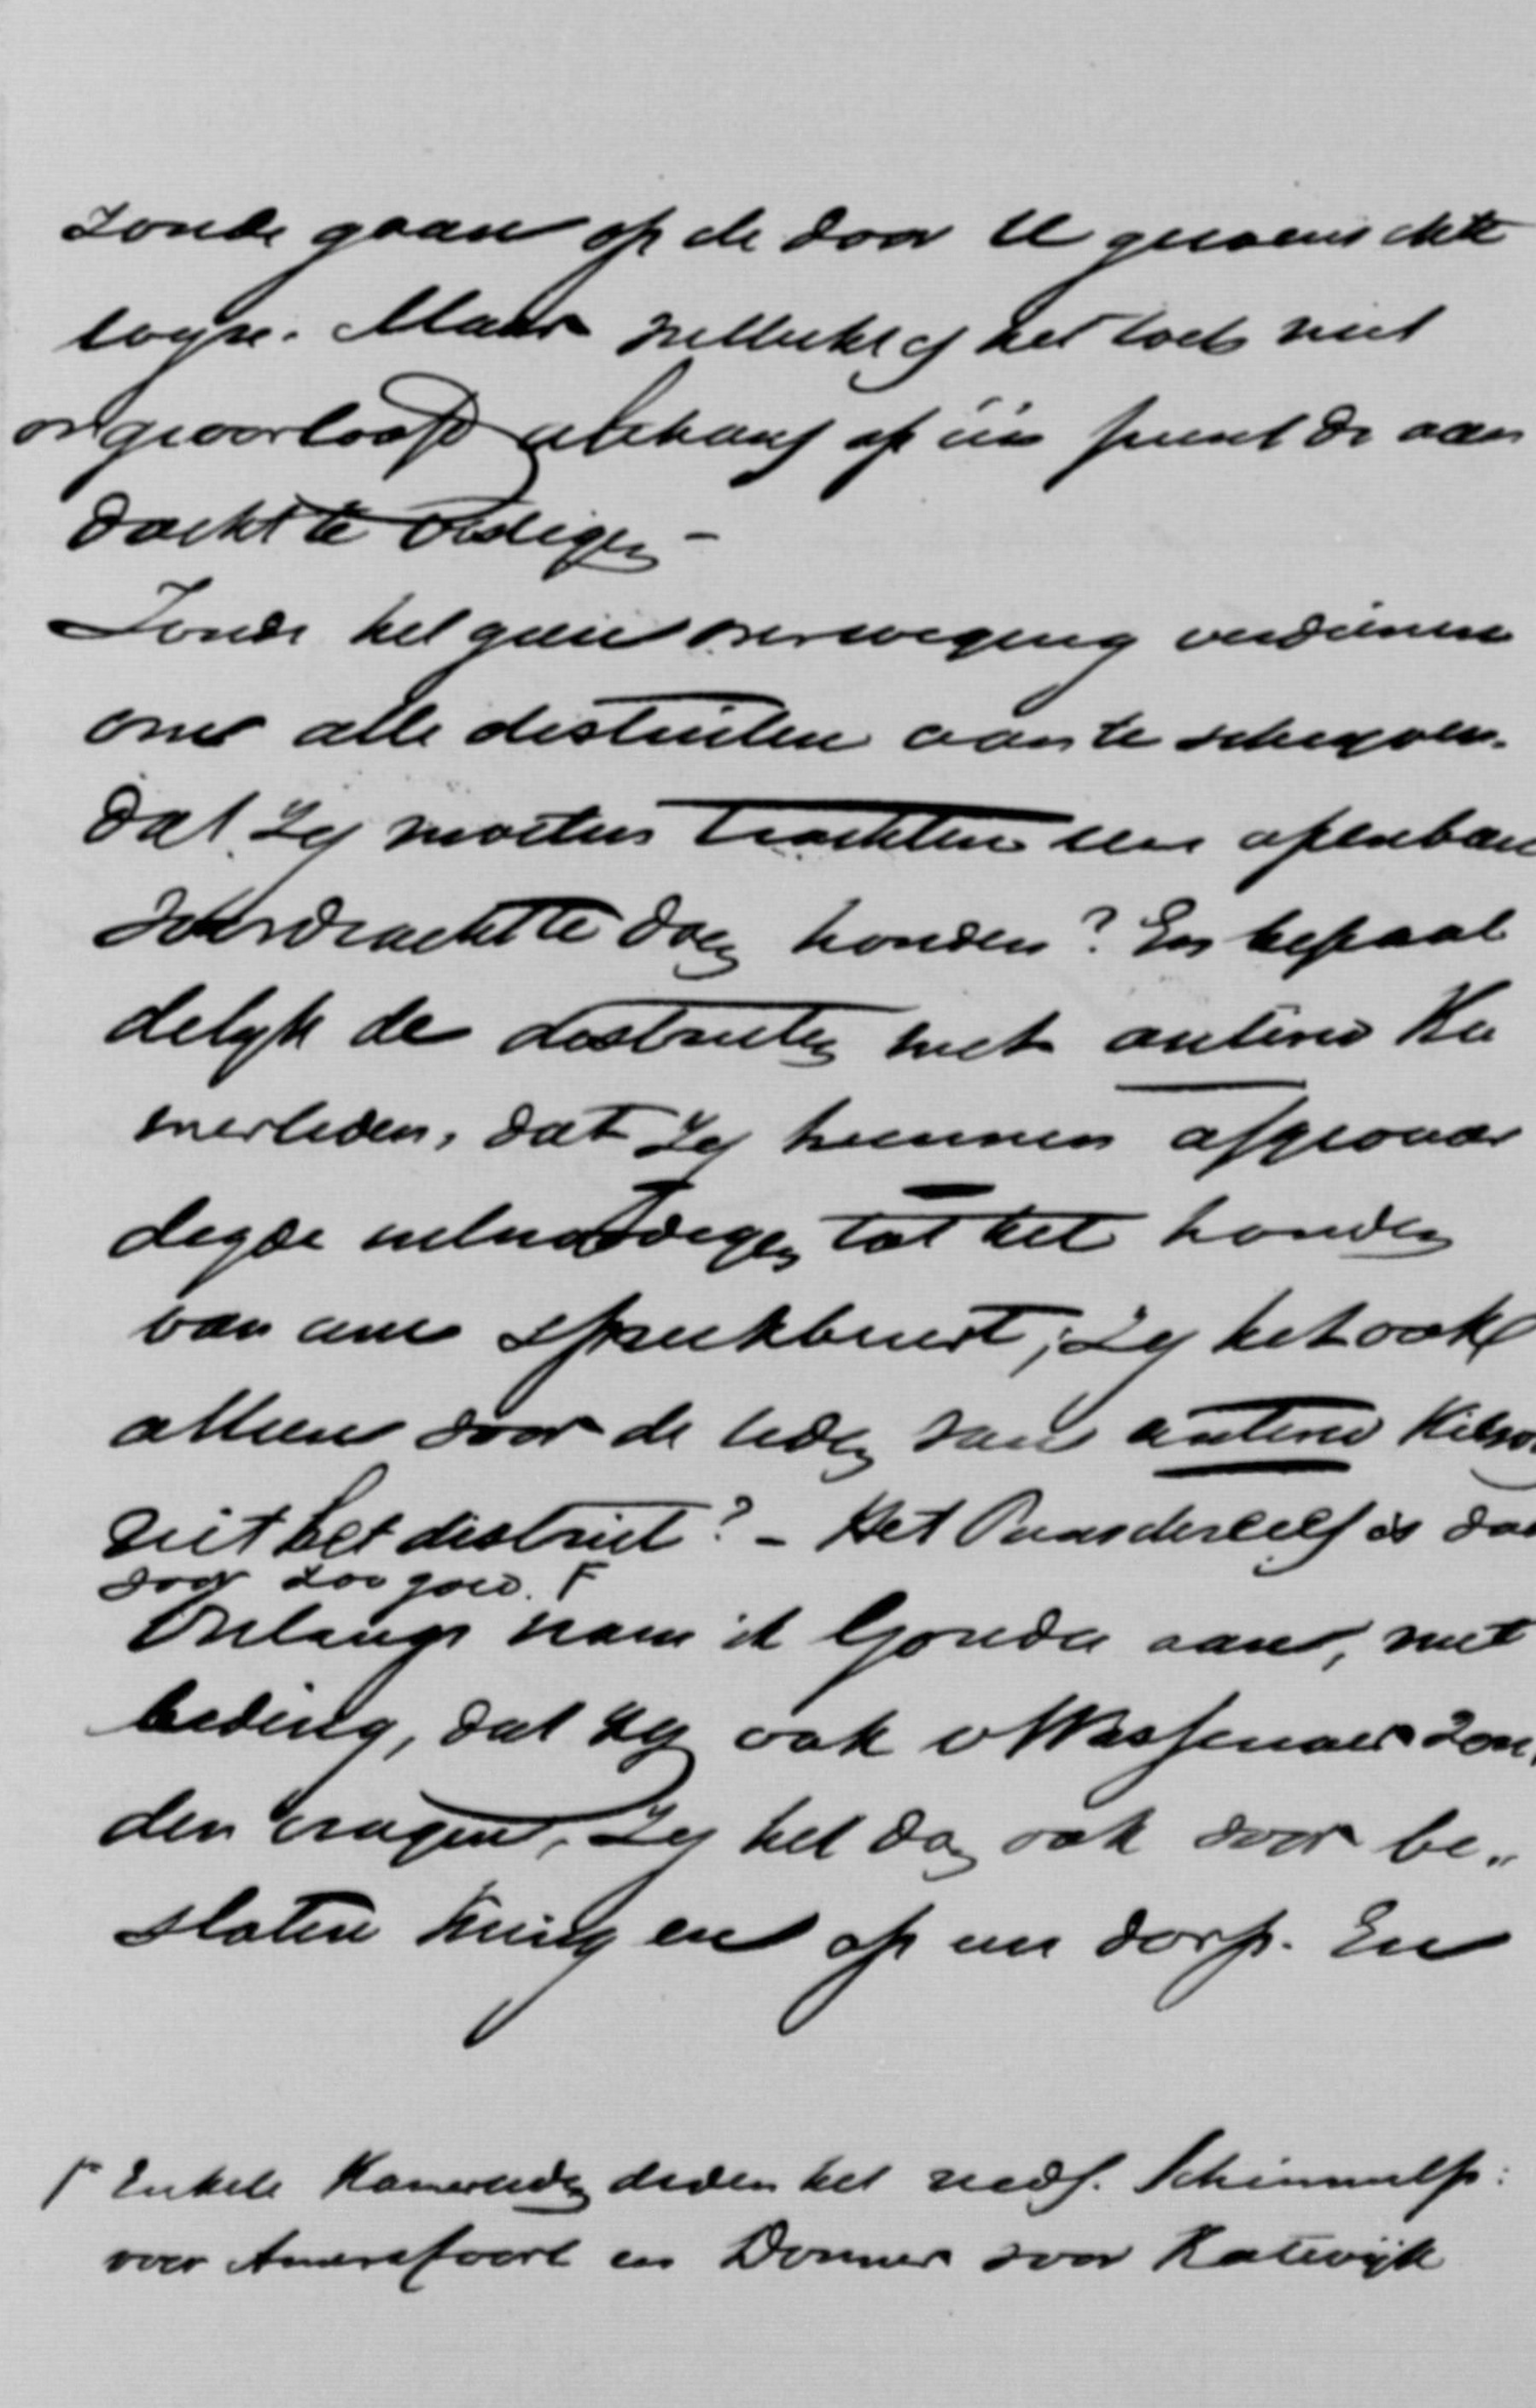 zoude gaan op de door U gewenschte
wyze. Maar wellicht is het toch niet
ongeoorloofd althans op één punt de aan
dacht te vestigen -
Zoude het geen overweging verdienen
om alle districten aan te schryven.
dat zy moeten trachten een openbare
voordracht te doen houden? En bepaal
delyk de districten met antirev Ka
merleden, dat zy hunnen afgevaar
digde uitnoodigen tot het houden
van eene spreekbeurt, zy het ook
alleen voor de leden van antirev Kiesv.
uit het district? - Het
voor zoo goed. F
Onlangs nam ik Gouda aan, met
beding, dat zy ook v Wassenaer zou
den vragen, zy het dan ook voor be„
sloten kring en op een dorp. En
F Enkele Kamerleden deden het reeds. Schimmelp:
voor Amersfoort en Donner voor Katwyk